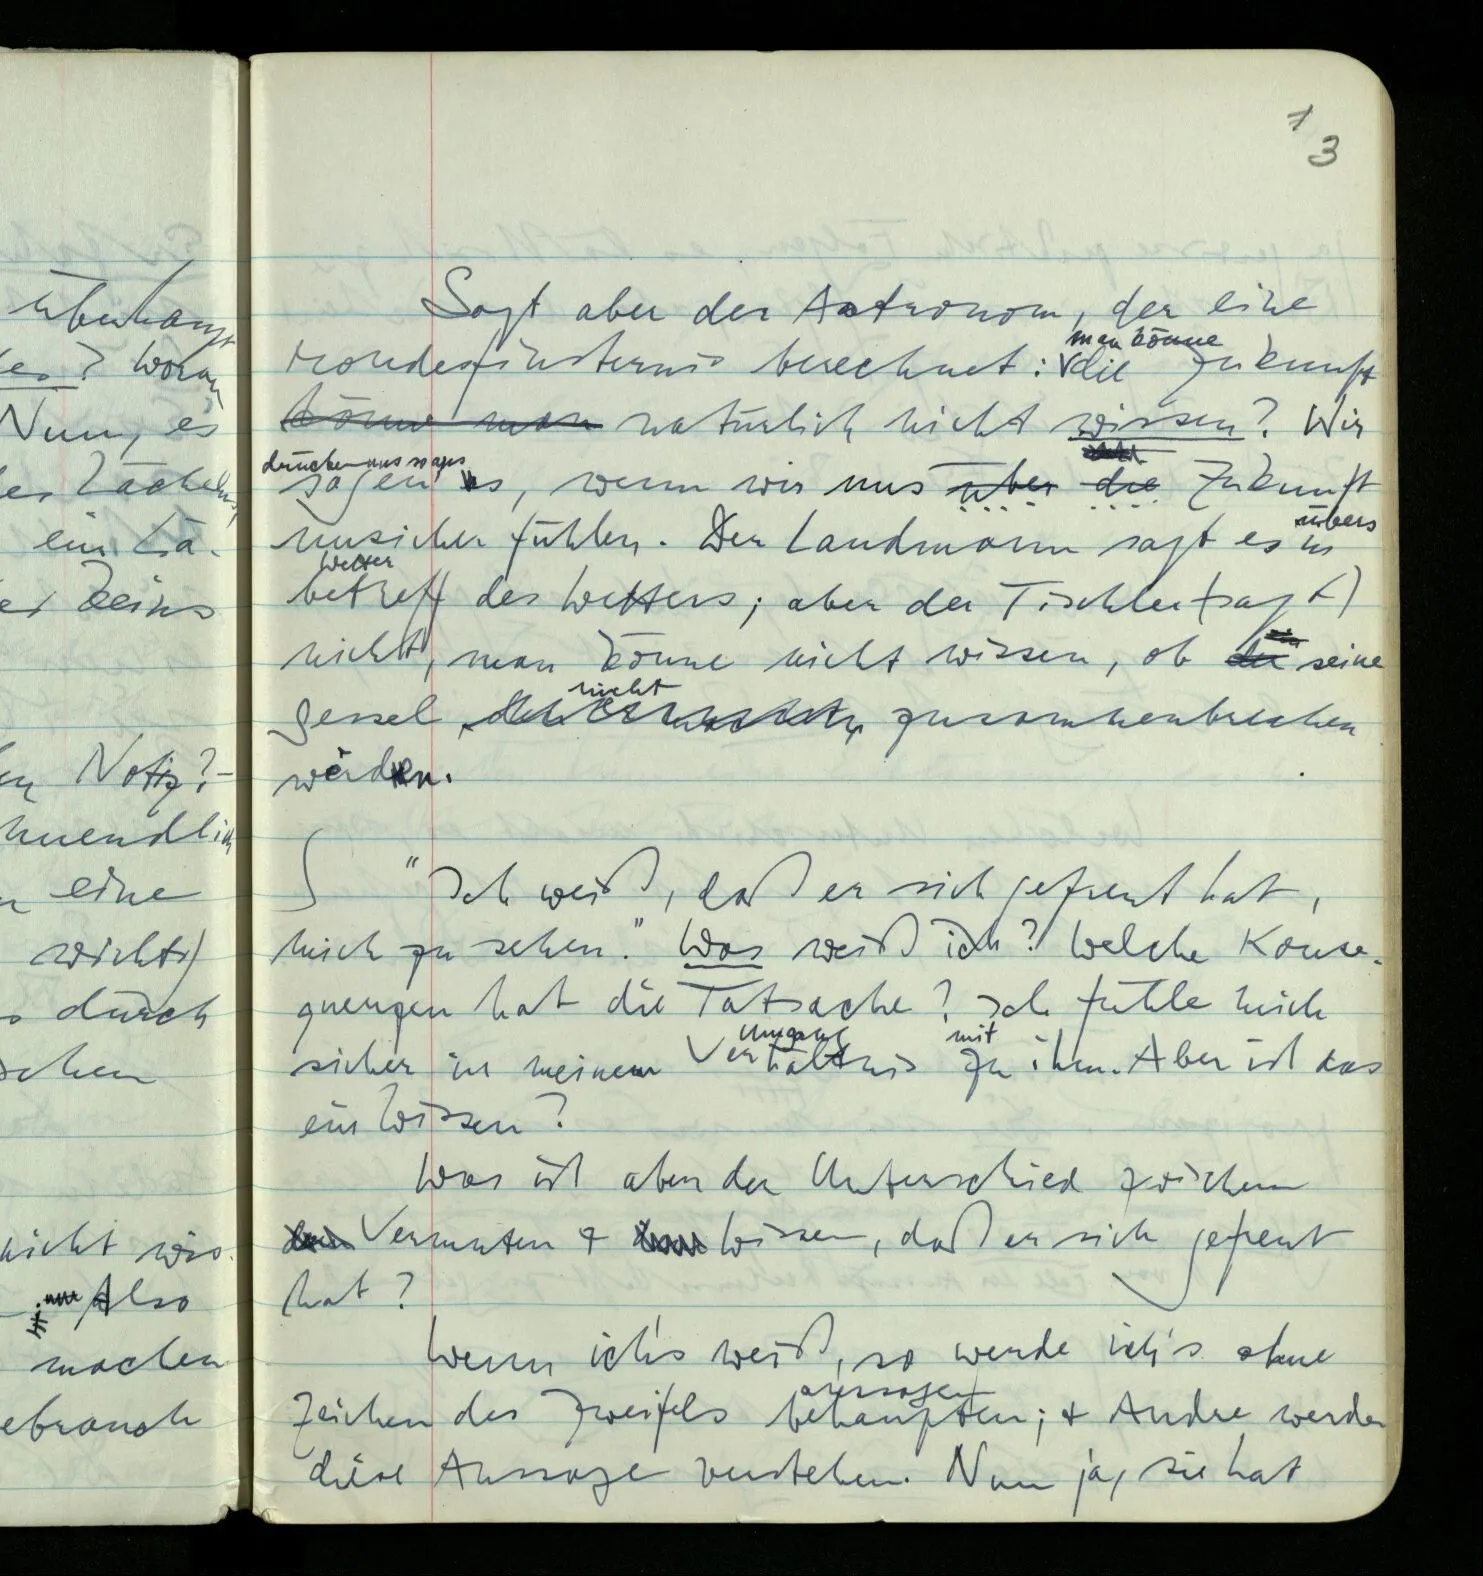 Überhaupt
? Woran
Nun, es
Lächeln,
ein Lä-
Keins
Notiz? –
unendlich
eine
durch
nicht wis-
Also
machen
3
Sagt aber der Astronom, der eine
man könne
Mondesfinsternis berechnet: die Zukunft
könne man natürlich nicht wissen? Wir
sagen es, wenn wir uns über die Zukunft
übers
unsicher fühlen. Der Landmann sagt es in
Wetter
betreff des Wetters; aber der Tischler (sagt)
nicht, man könne nicht wissen, ob seine
nicht
Sessel zusammenbrechen
werden.
"Ich weiß, daß er sich gefreut hat,
mich zu sehen." Was weiß ich? Welche Konse-
quenzen hat die Tatsache? Ich fühle mich
Umgang mit
sicher in meinem Verhältnis zu ihm. Aber ist das
ein Wissen?
Was ist aber der Unterschied zwischen
Vermuten & Wissen, daß er sich gefreut
hat?
Wenn ich's weiß, so werde ich's ohne
aussagen
Zeichen des Zweifels behaupten; & Andre werden
diese Aussage verstehen. Nun ja, sie hat